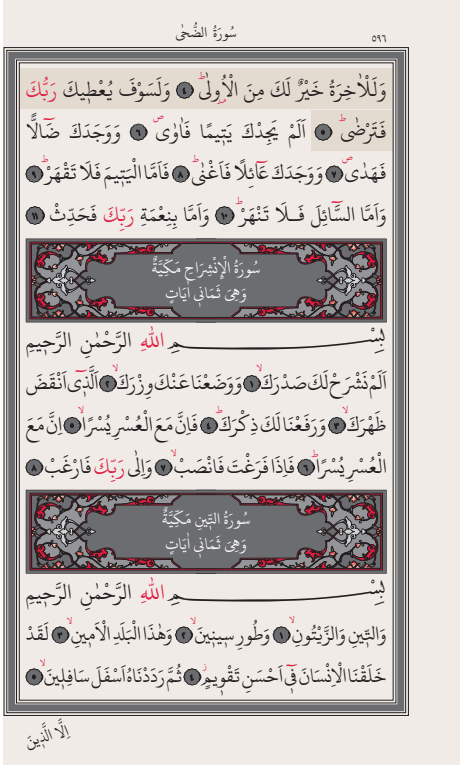 سُورَةُ الضُّحٰى
٥٩٦
وَلَلْاٰخِرَةُ خَيْرٌ لَكَ مِنَ الْاُو۫لٰىۜ ٤ وَلَسَوْفَ يُعْط۪يكَ رَبُّكَ
فَتَرْضٰىۜ ٥ اَلَمْ يَجِدْكَ يَت۪يمًا فَاٰوٰىۖ ٦ وَوَجَدَكَ ضَٓالًّا
فَهَدٰىۖ ٧ وَوَجَدَكَ عَٓائِلًا فَاَغْنٰىۜ ٨ فَاَمَّا الْيَت۪يمَ فَلَا تَقْهَرْۜ ٩
وَاَمَّا السَّٓائِلَ فَلَا تَنْهَرْۜ ١٠ وَاَمَّا بِنِعْمَةِ رَبِّكَ فَحَدِّثْ ١١
سُورَةُ الْاِنْشِرَاحِ مَكِّيَّةٌ
وَهِيَ ثَمَانِي اٰيَاتٍ
بِسْمِ اللّٰهِ الرَّحْمٰنِ الرَّح۪يمِ
اَلَمْ نَشْرَحْ لَكَ صَدْرَكَۙ ١ وَوَضَعْنَا عَنْكَ وِزْرَكَۙ ٢ اَلَّذ۪ٓي اَنْقَضَ
ظَهْرَكَۙ ٣ وَرَفَعْنَا لَكَ ذِكْرَكَۜ ٤ فَاِنَّ مَعَ الْعُسْرِ يُسْرًاۙ ٥ اِنَّ مَعَ
الْعُسْرِ يُسْرًاۜ ٦ فَاِذَا فَرَغْتَ فَانْصَبْۙ ٧ وَاِلٰى رَبِّكَ فَارْغَبْ ٨
سُورَةُ التّ۪ينِ مَكِّيَّةٌ
وَهِيَ ثَمَانِي اٰيَاتٍ
بِسْمِ اللّٰهِ الرَّحْمٰنِ الرَّح۪يمِ
وَالتّ۪ينِ وَالزَّيْتُونِۙ ١ وَطُورِ س۪ين۪ينَۙ ٢ وَهٰذَا الْبَلَدِ الْاَم۪ينِۙ ٣ لَقَدْ
خَلَقْنَا الْاِنْسَانَ ف۪ٓي اَحْسَنِ تَقْو۪يمٍۘ ٤ ثُمَّ رَدَدْنَاهُ اَسْفَلَ سَافِل۪ينَۙ ٥
اِلَّا الَّذ۪ينَ